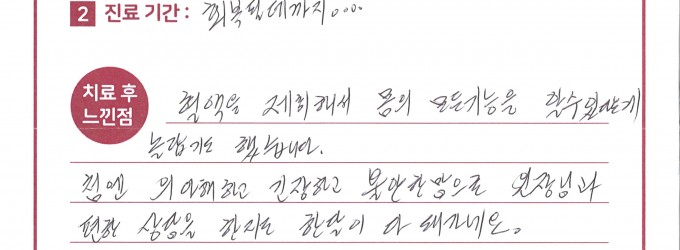 2 진료 기간 : 회복될때까지...
치료 후
느낀점
혈액을 채취해서 몸의 모든기능을 알수있다는게
놀랍기도 했습니다.
첨엔 의아해하고 긴장하고 불안한맘으로 원장님과
편한 상담을 한지도 한달이 다 돼가네요.